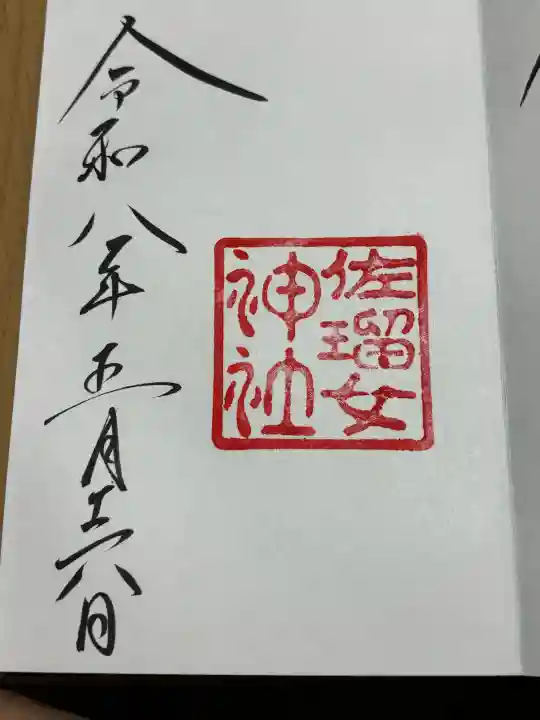 佐瑠女
神社
令和八年五月十六日